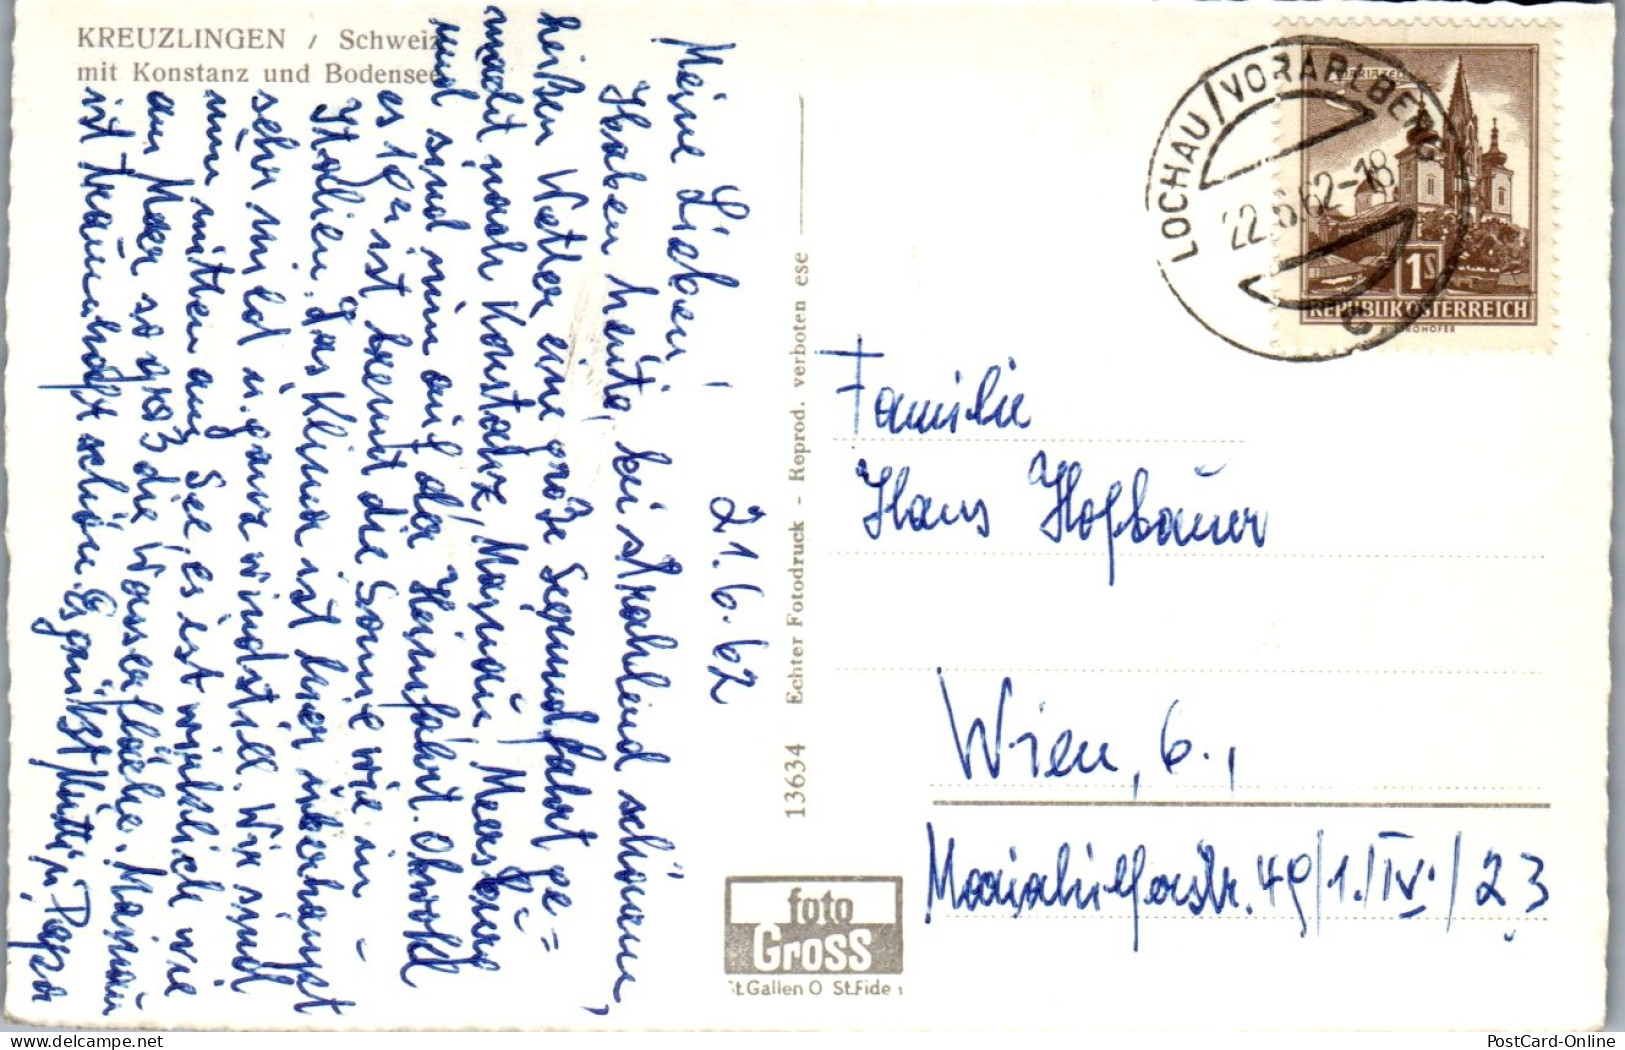 KREUZLINGEN / Schweiz
mit Konstanz und Bodensee
21.6.62
Meine Lieben!
Haben heute, bei strahlend schönem,
heißen Wetter eine große Seerundfahrt ge=
macht nach Konstanz, Mainau, Meersburg
und sind nun auf der Heimfahrt. Obwohl
es 19h ist brennt die Sonne wie in
Italien. Das Klima ist hier überhaupt
sehr mild u. ganz windstill. Wir sind
nun mitten am See, es ist wirklich wie
am Meer so groß die Wasserfläche. Mainau
ist traumhaft schön. Es grüßt Mutti u. Papa
13634 Echter Fotodruck - Reprod. verboten ese
foto
Gross
St.Gallen O St.Fiden
LOCHAU/VORARLBERG
22.6.62-18
MARIAZELL
1S
REPUBLIK ÖSTERREICH
Familie
Hans Hofbauer
Wien, 6.,
Mariahilferstr. 49/1./IV./23
PostCard-Online